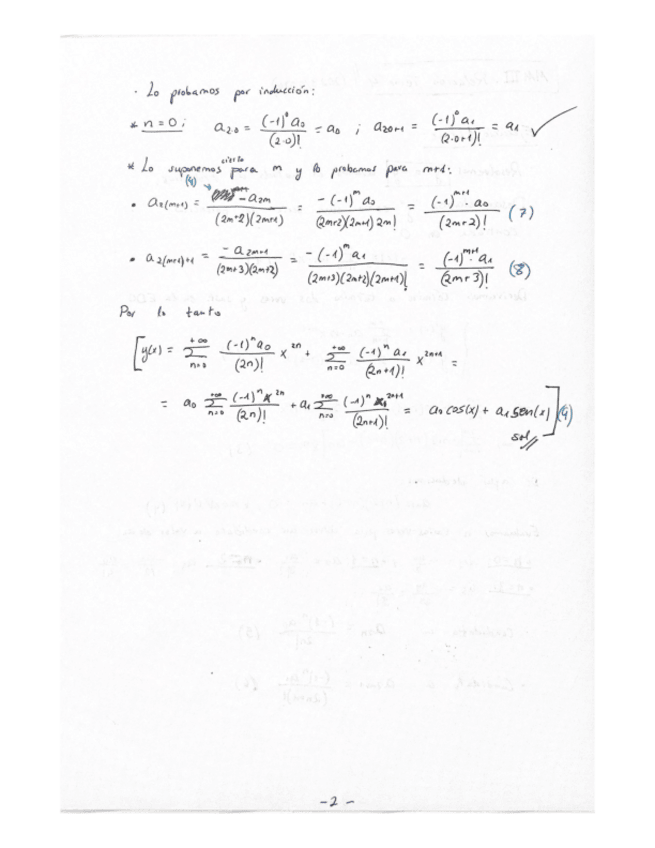 · Lo probamos por inducción:
* n=0; a₂.₀ = (-1)⁰a₀/(2·0)! = a₀ ; a₂₀₊₁ = (-1)⁰a₁/(2·0+1)! = a₁ ✓
* Lo suponemos cierto para m y lo probamos para m+1:
(4)
• a₂₍ₘ₊₁₎ = -a₂ₘ/(2m+2)(2m+1) = -(-1)ᵐa₀/(2m+2)(2m+1)2m! = (-1)ᵐ⁺¹·a₀/(2m+2)! (7)
• a₂₍ₘ₊₁₎₊₁ = -a₂ₘ₊₁/(2m+3)(2m+2) = -(-1)ᵐa₁/(2m+3)(2m+2)(2m+1)! = (-1)ᵐ⁺¹·a₁/(2m+3)! (8)
Por lo tanto
[y(x) = Σₙ₌₀^+∞ (-1)ⁿa₀/(2n)! x²ⁿ + Σₙ₌₀^+∞ (-1)ⁿa₁/(2n+1)! x²ⁿ⁺¹ =
= a₀ Σₙ₌₀^+∞ (-1)ⁿx²ⁿ/(2n)! + a₁ Σₙ₌₀^+∞ (-1)ⁿx²ⁿ⁺¹/(2n+1)! = a₀cos(x) + a₁sen(x)]
sol
-2-